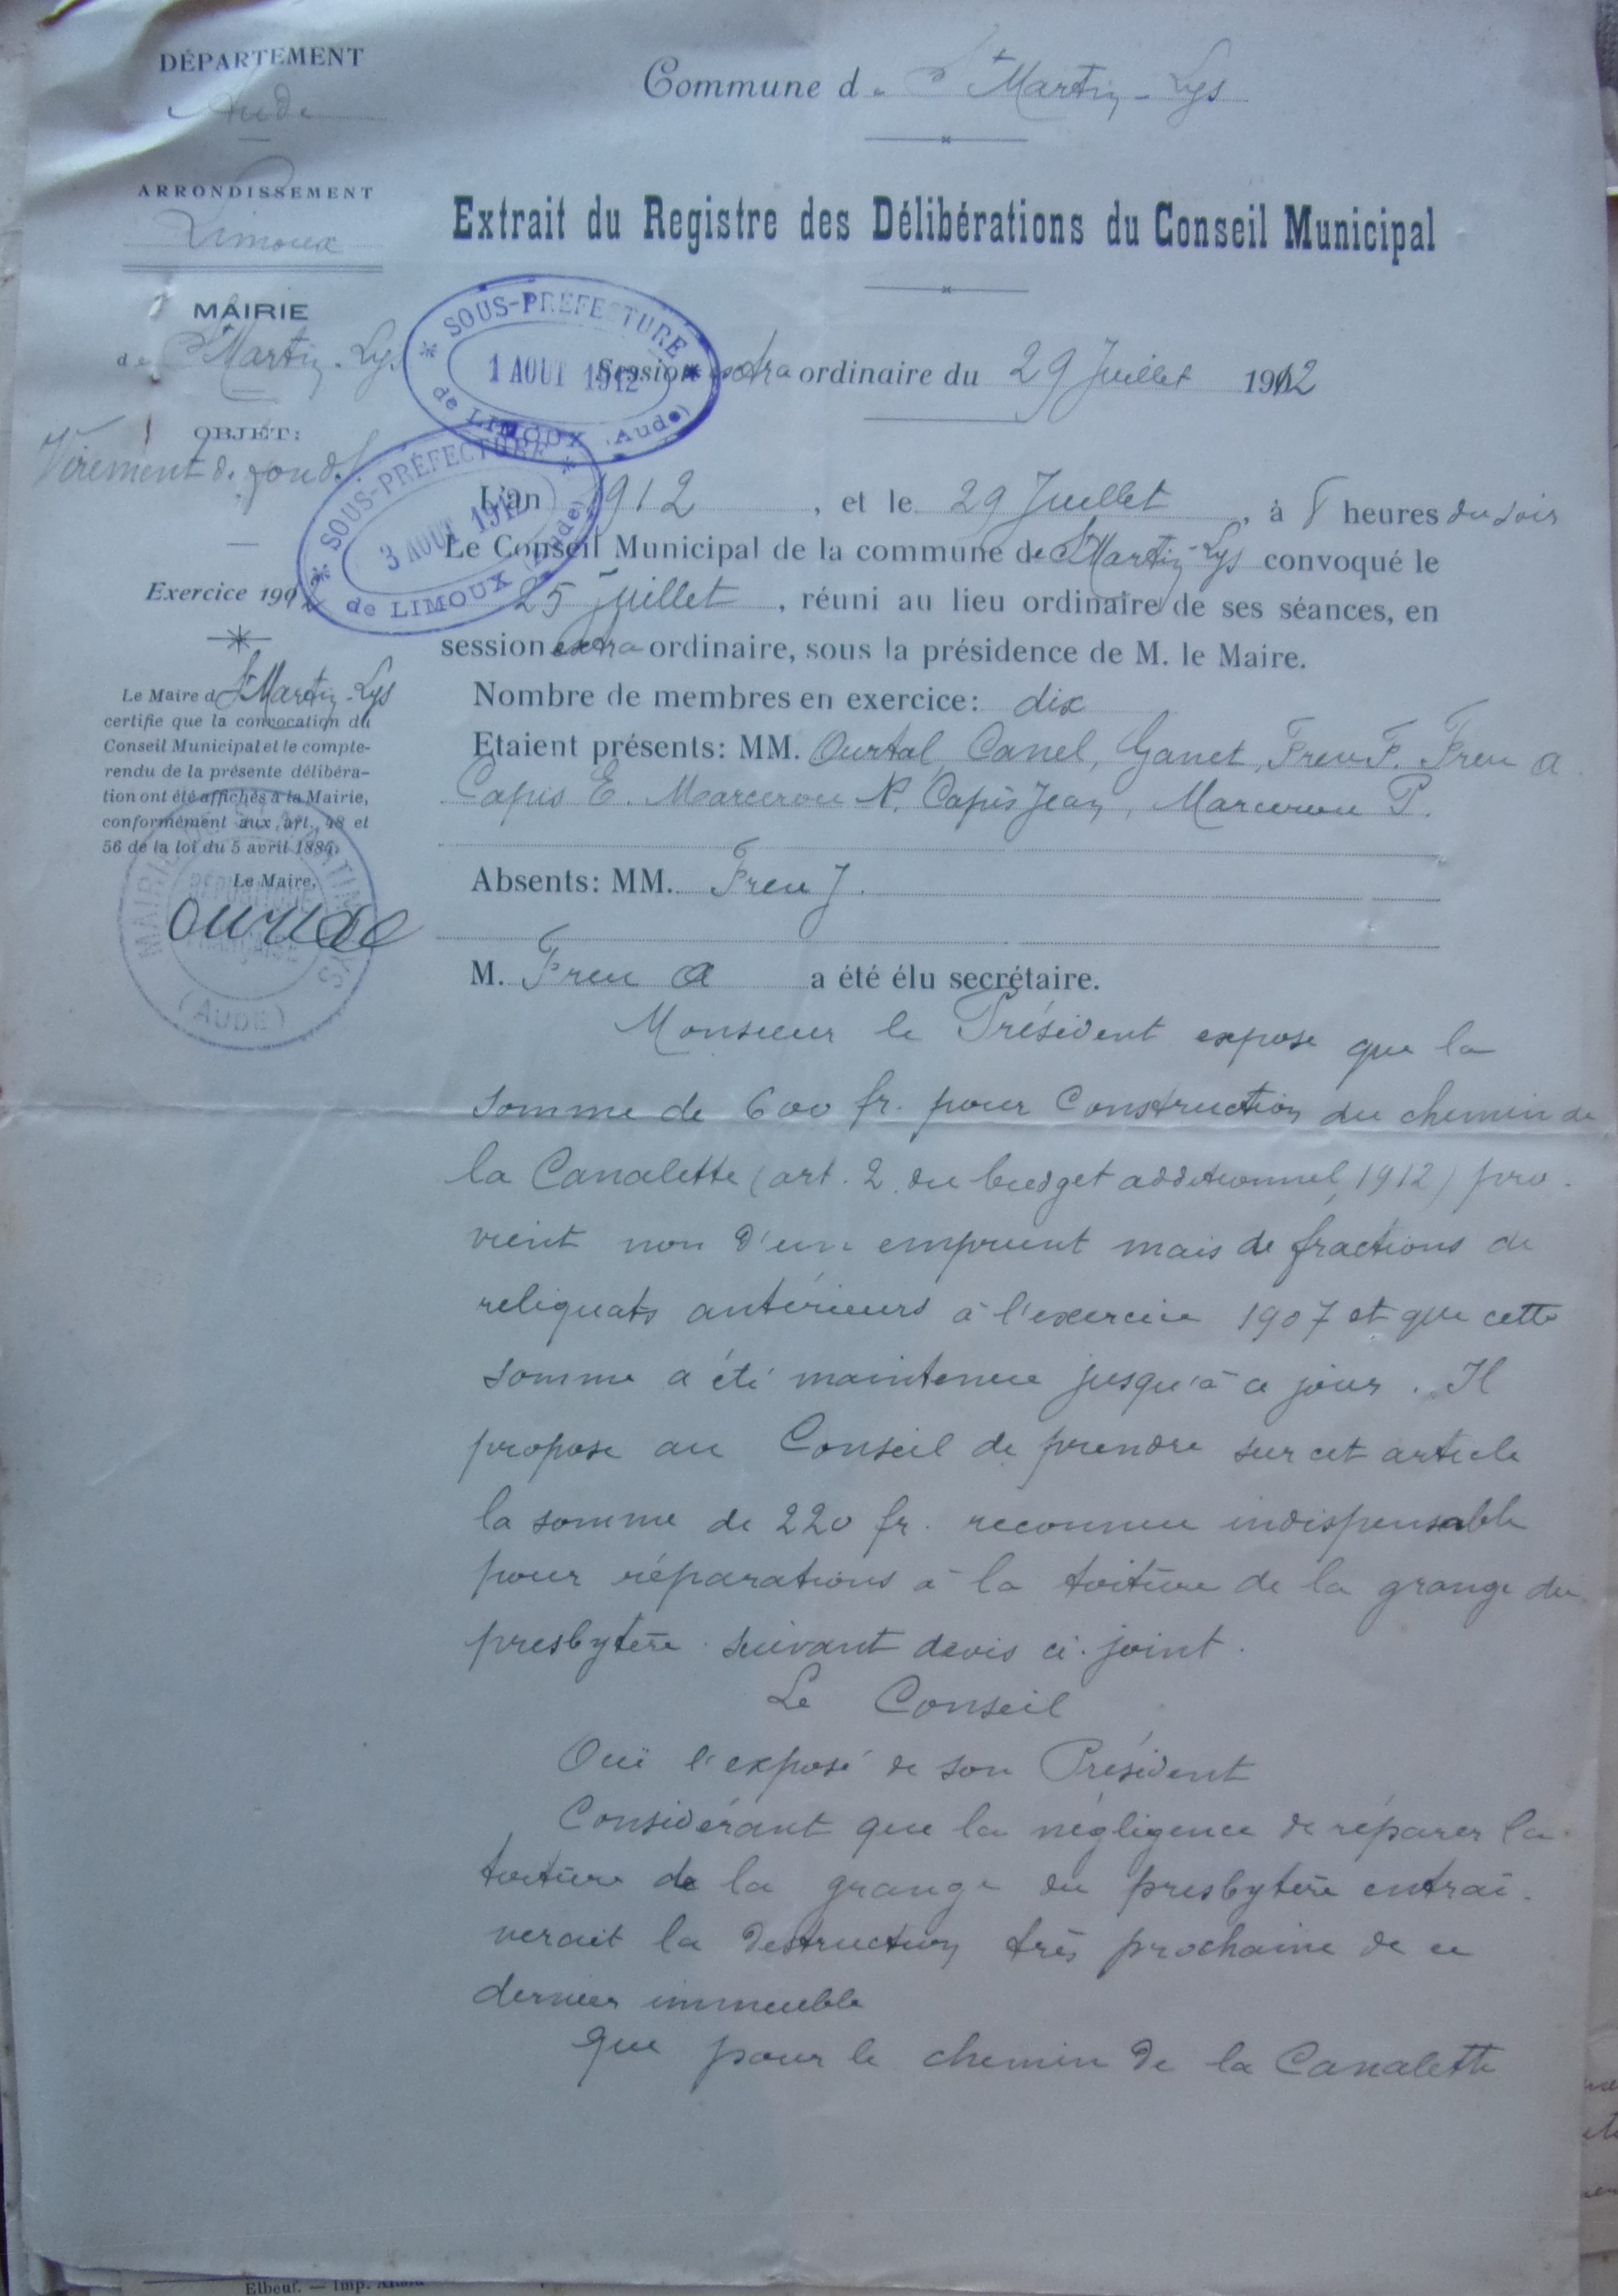 DÉPARTEMENT
Aude
ARRONDISSEMENT
Limoux
MAIRIE
de St Martin-Lys
OBJET:
Virement de fonds
Exercice 1912
Le Maire d St Martin-Lys
certifie que la convocation du
Conseil Municipal et le compte-
rendu de la présente délibéra-
tion ont été affichés à la Mairie,
conformément aux art. 48 et
56 de la loi du 5 avril 1884.
Le Maire,
Ourtal
MAIRIE MARTIN LYS
RÉPUBLIQUE
FRANÇAISE
(AUDE)
Commune de St Martin-Lys
Extrait du Registre des Délibérations du Conseil Municipal
SOUS-PRÉFECTURE
1 AOUT 1912
de LIMOUX (Aude)
SOUS-PRÉFECTURE
3 AOUT 1912
de LIMOUX (Aude)
Session extra ordinaire du 29 Juillet 1912
L'an 1912, et le 29 Juillet, à 8 heures du soir
Le Conseil Municipal de la commune de St Martin-Lys convoqué le
25 Juillet, réuni au lieu ordinaire de ses séances, en
session extra ordinaire, sous la présidence de M. le Maire.
Nombre de membres en exercice: dix
Etaient présents: MM. Ourtal, Canel, Ganet, Freu F. Freu A
Capis E. Marcerou N. Capis Jean, Marcerou P.
Absents: MM. Freu J.
M. Freu A a été élu secrétaire.
Monsieur le Président expose que la
somme de 600 fr. pour Construction du chemin de
la Canalette (art. 2 du budget additionnel 1912) pro-
vient non d'un emprunt mais de fractions de
reliquats antérieurs à l'exercice 1907 et que cette
somme a été maintenue jusqu'à ce jour. Il
propose au Conseil de prendre sur cet article
la somme de 220 fr. reconnue indispensable
pour réparations à la toiture de la grange du
presbytère suivant devis ci-joint.
Le Conseil
Ouï l'exposé de son Président
Considérant que la négligence de réparer la
toiture de la grange du presbytère entraî-
nerait la destruction très prochaine de ce
dernier immeuble
que pour le chemin de la Canalette
Elbeuf. — Imp.